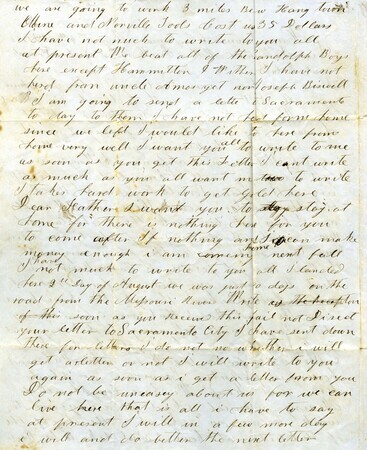 we are going to work 3 miles Bew Hang town
and Norville Tools Cost us 35 Dollars
I have not much to write to you all
at present We beat all of the Randolph Boys
here except Hammilton I have not
herd from uncle Amos yet nor Joseph Biswell
I am going to send a letter to Sacramento
to day to them I have not form home
since we left I would like to here from
home very well I want you all to write to me
as soon as you get this Letter I cant write
as much as you all want me to write
taks hard work to get Gold here
I can Heather I want you to stay at
home for there is nothing here for you
to come after If nothing I can make
money enough i am coming home next fall
I have not much to write to you All I landed
here 2nd Day of August we was just days on the
road from the Missouri River Write
of this soon as you receive this fail not Direct
your letter to Sacramento City I have sent down
there for letters I do not no whether i will
get a letter or not I will write to you
again as soon as i get a letter from you
Do not be uneasey about us for we can
live here that is all i have to say
at present I will in a few more day
i will and do better the next letter